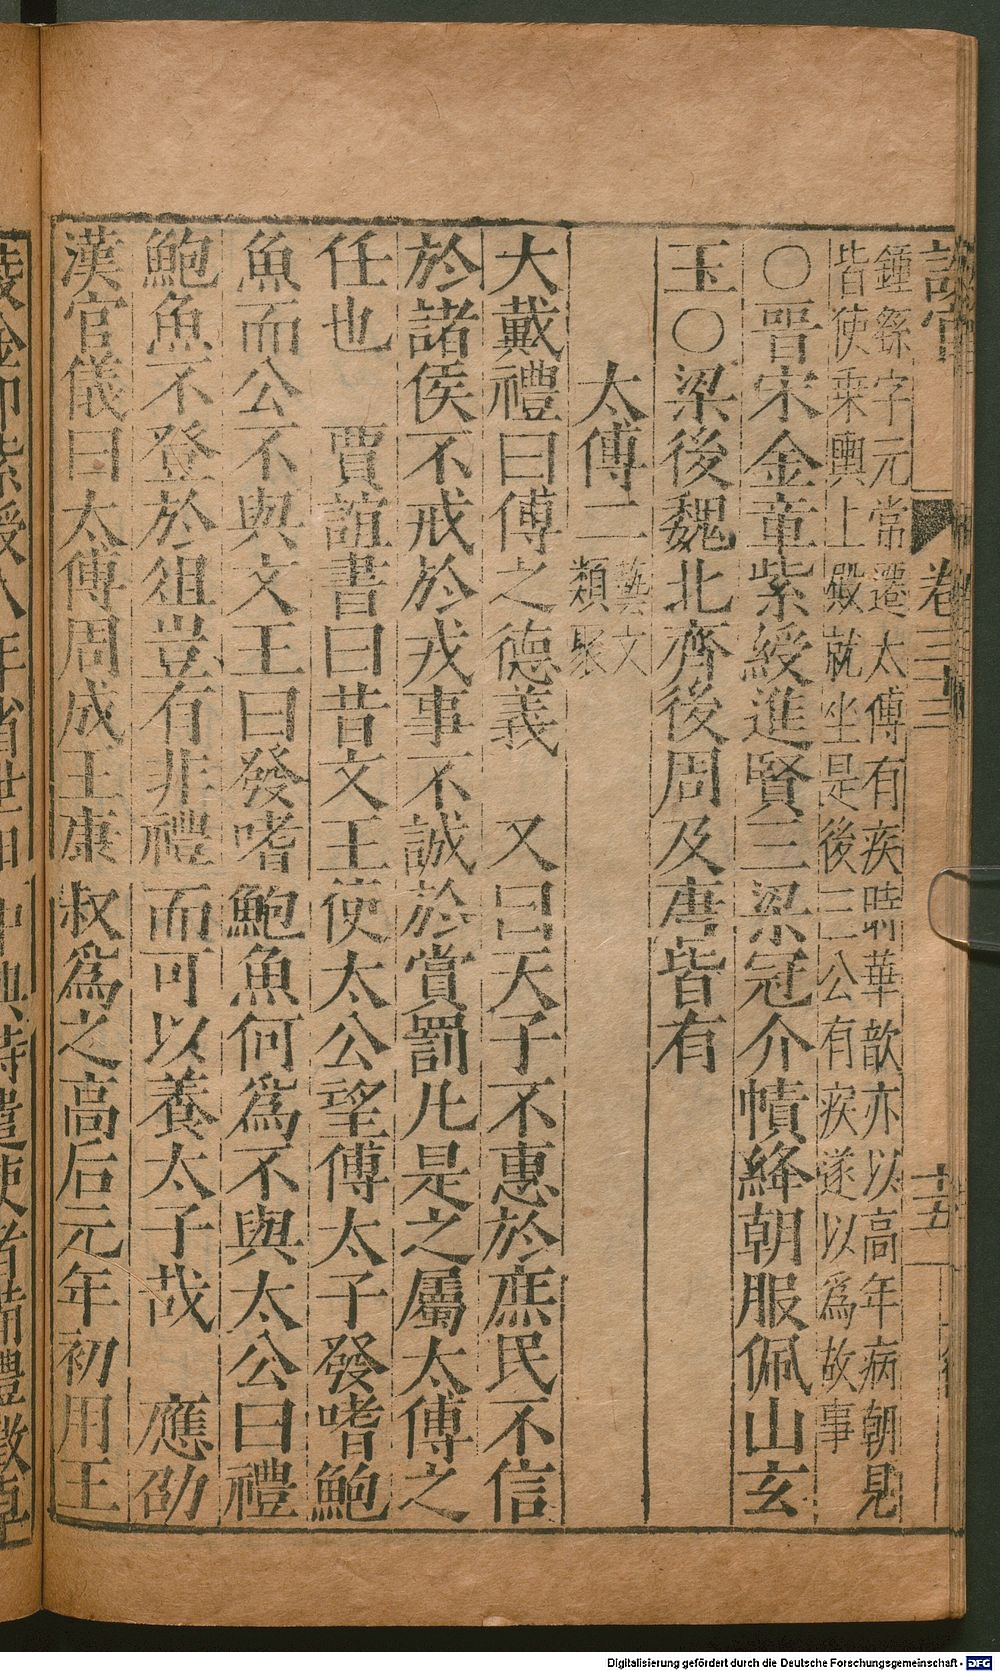 卷三十三
十五
鍾繇字元常遷太傅有疾時華歆亦以高年病朝見
皆使乘輿上殿就坐是後三公有疾遂以爲故事
○晉宋金章紫綬進賢三梁冠介幘絳朝服佩山玄
玉○梁後魏北齊後周及唐皆有
太傅二
藝文
類聚
大戴禮曰傅之德義　又曰天子不惠於庶民不信
於諸侯不戒於戎事不誠於賞罰凡是之屬太傅之
任也　賈誼書曰昔文王使太公望傅太子發嗜鮑
魚而公不與文王曰發嗜鮑魚何爲不與太公曰禮
鮑魚不登於俎豈有非禮而可以養太子哉　應劭
漢官儀曰太傅周成王康叔爲之高后元年初用王
Digitalisierung gefördert durch die Deutsche Forschungsgemeinschaft - DFG